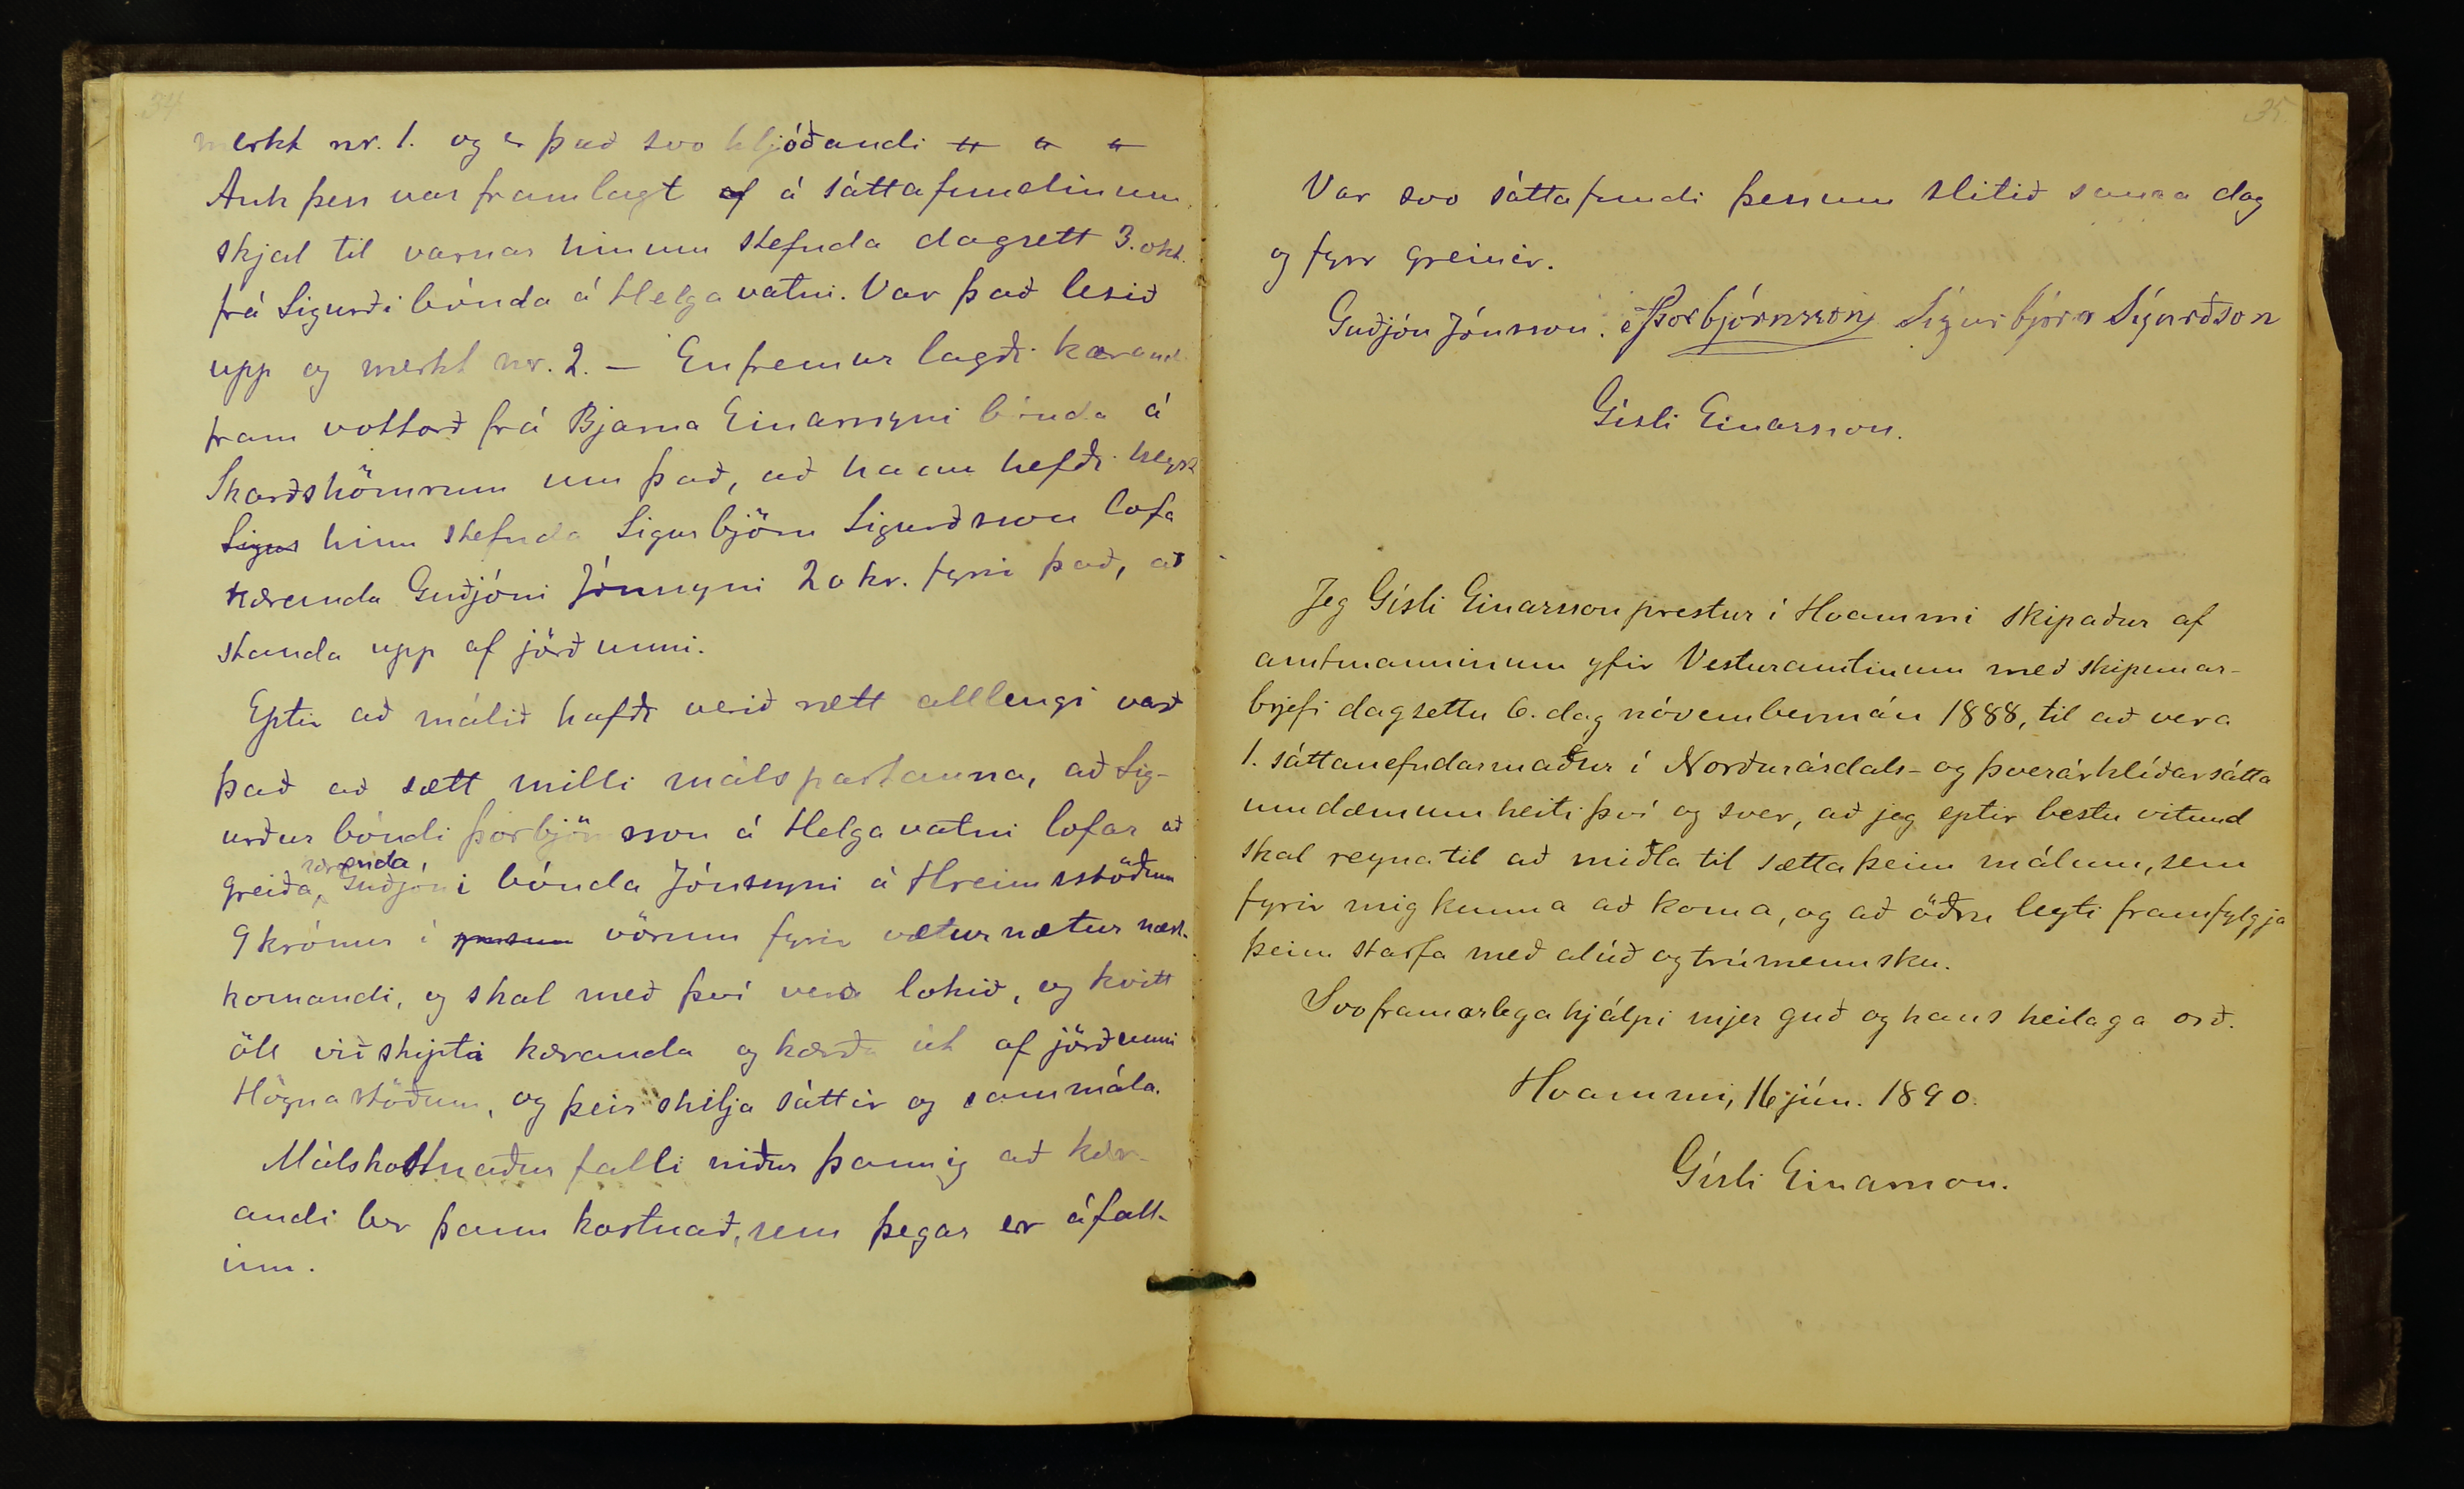 34
merkt nr. 1. og er það svo hljóðandi " " "
Auk þess var framlagt af á sáttafundinum
skjal til varnar hinum stefnda dagsett 3. okt.
frá Sigurði bónda á Helgavatni. Var það lesið
upp og merkt nr. 2. — Enfremur lagði kærand.
fram vottorð frá Bjarna Einarssyni bónda á
Skarðshömrum um það, að hann hefði heyrt
Sigur hinn stefnda Sigurbjörn Sigurðsson lofa
kæranda Guðjóni Jónssyni 20 kr. fyrir það, að
standa upp af jörðunni.
Eptir að málið hafði verið rætt alllengi varð
það að sætt milli málspartanna, að Sig-
urður bóndi Þorbjörnsson á Helgavatni lofar að
kæranda
greiða, Guðjóni bónda Jónssyni á Hreimsstöðum
9 krónur í vörum fyrir vetur nætur næst-
komandi, og skal með því vera lokið, og kvitt
öll viðskipti kæranda og kærða út af jörðunni
Högnastöðum, og þeir skilja sáttir og sammála.
Málskostnaður falli niður þannig að kær-
andi ber þann kostnað, sem þegar er áfall-
inn.
35.
Var svo sáttafundi þessum slitið sama dag
og fyrr greinir.
Guðjón Jónsson. SÞorbjörnsson Sigurbjörn Sigurðson
Gísli Einarsson.
Jeg Gísli Einarsson prestur í Hvammi skipaður af
amtmanninum yfir Vesturamtinum með skipunar-
brjefi dagsettu 6. dag nóvembermán 1888, til að vera
1. sáttanefndarmaður í Norðurárdals- og Þverárhlíðarsátta
umdæmum heiti því og sver, að jeg eptir bestu vitund
skal reyna til að miðla til sætta þeim málum, sem
fyrir mig kunna að koma, og að öðru leyti framfylgja
þeim starfa með alúð og trúmennsku.
Svo framarlega hjálpi mjer guð og hans heilaga orð.
Hvammi, 16 jún. 1890.
Gísli Einarsson.